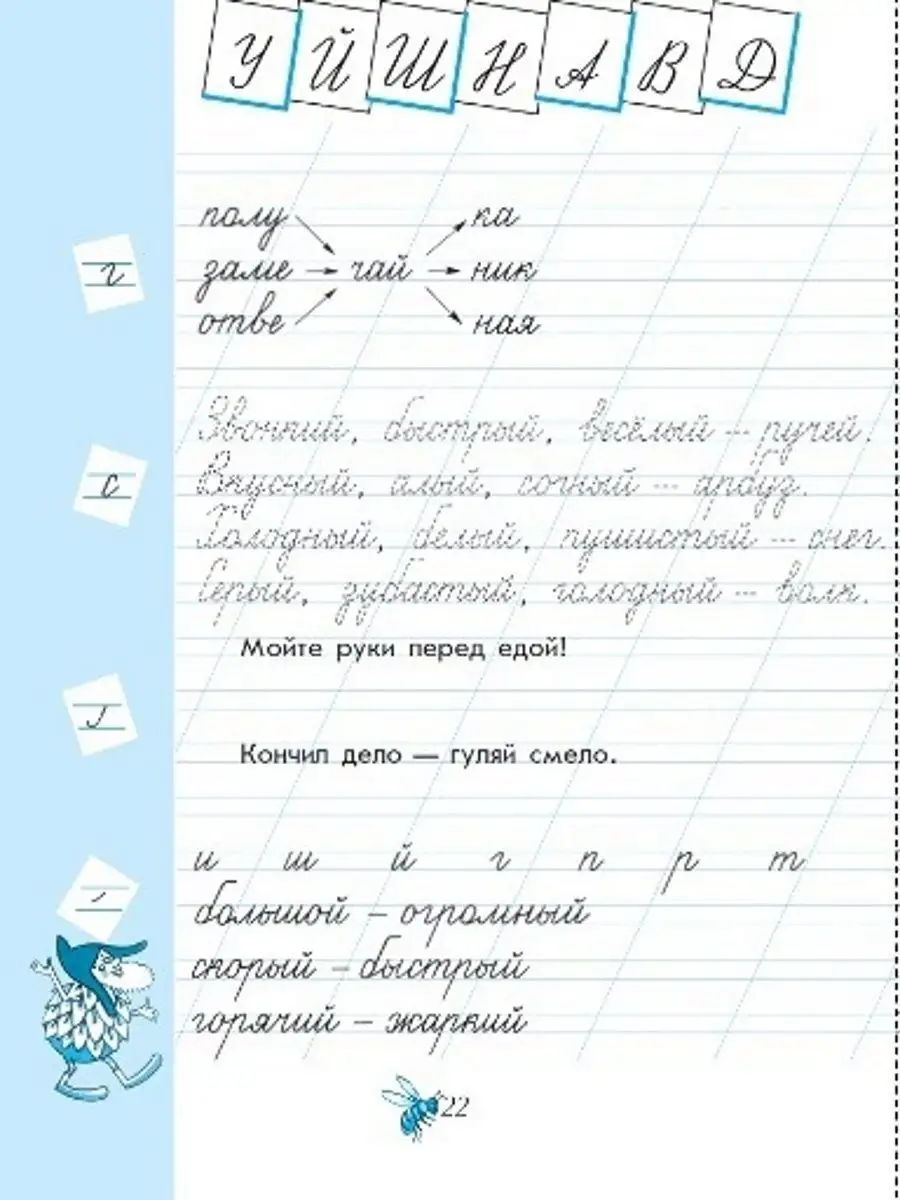 У Й Ш Н А В Д
полу ка
г
заме чай ник
отве ная
Звонкий, быстрый, весёлый — ручей.
с
Вкусный, алый, сочный — арбуз.
Холодный, белый, пушистый — снег.
Серый, зубастый, голодный — волк.
Мойте руки перед едой!
Кончил дело — гуляй смело.
и ш й г п р т
большой – огромный
скорый – быстрый
горячий – жаркий
22